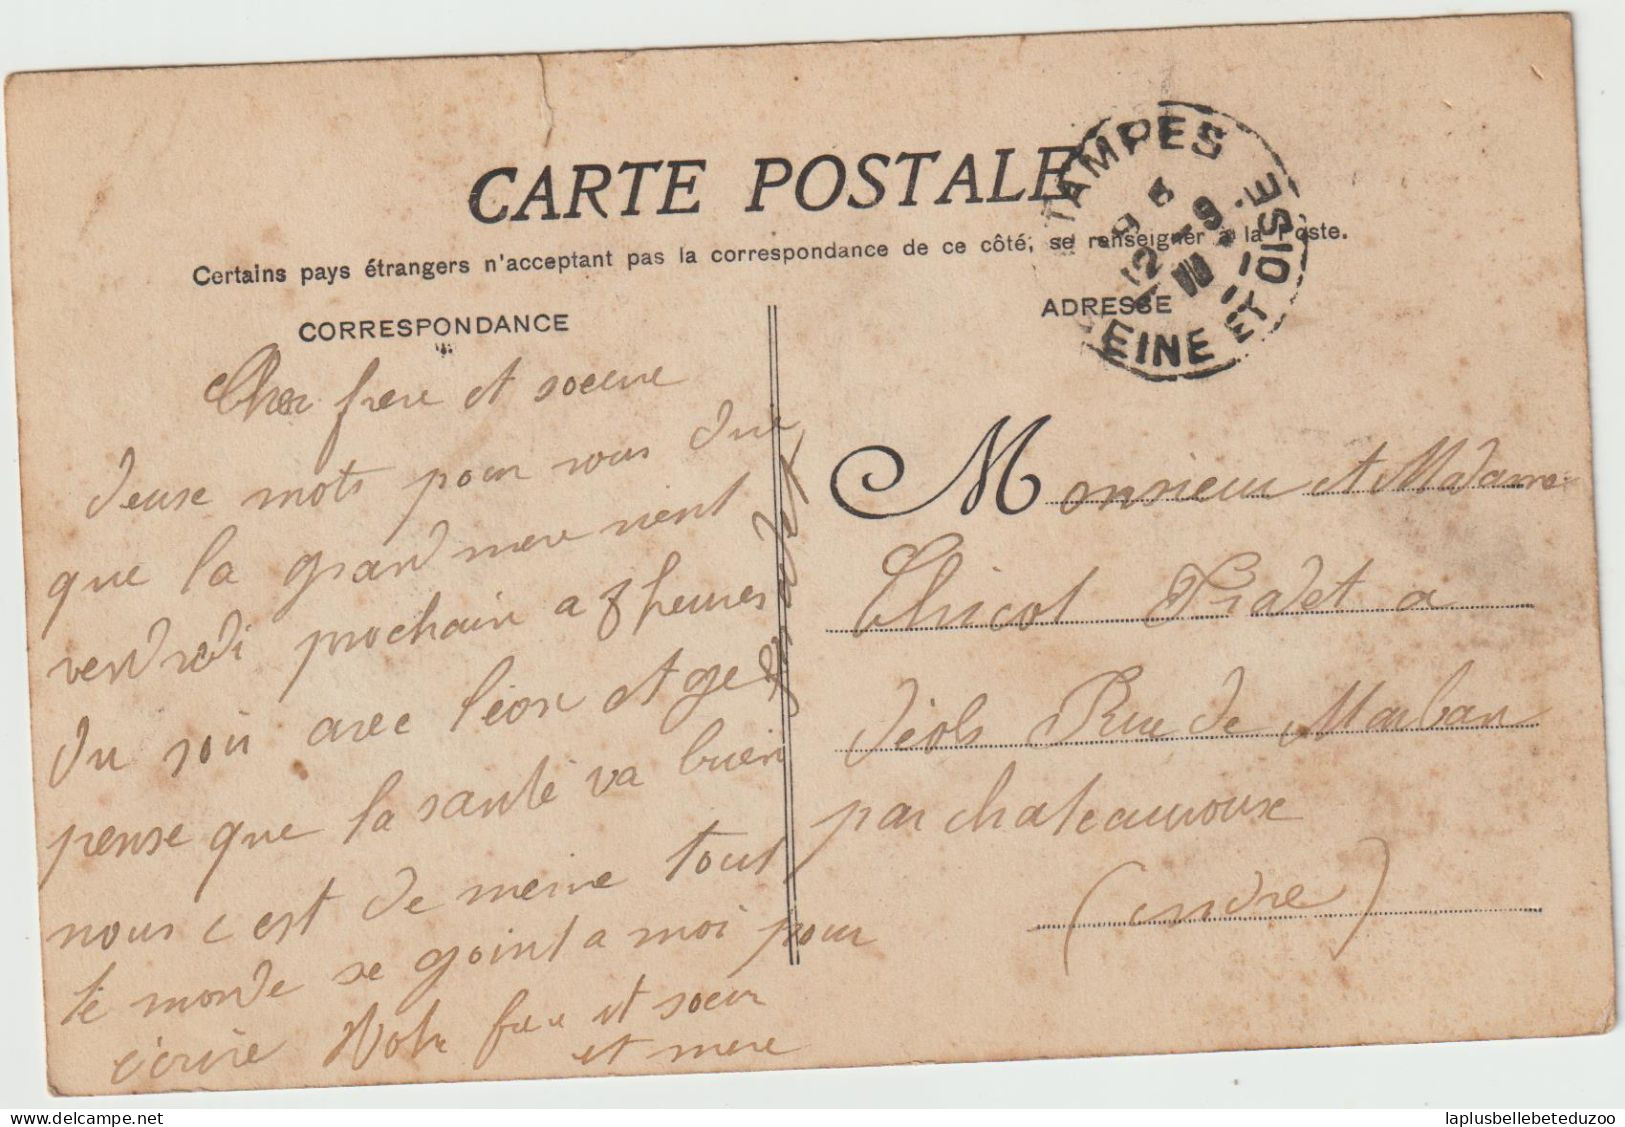 CARTE POSTALE
Certains pays étrangers n'acceptant pas la correspondance de ce côté, se renseigner à la Poste.
CORRESPONDANCE
ADRESSE
TAMPES
EINE ET OISE
Cher frere et soeure
deuse mots pour vous dire
que la grand mere vient
vendredi prochain a 8 heures
du soir avec léon et ge
pense que la santé va bien
nous c est de meme tout
le monde se goint a moi pour
écrire Votre frere et soeur
et mere
Monsieur et Madame
Chicot a
déols Rue de
par chateaurouse
(indre)
CPA
laplusbellebeteduzoo